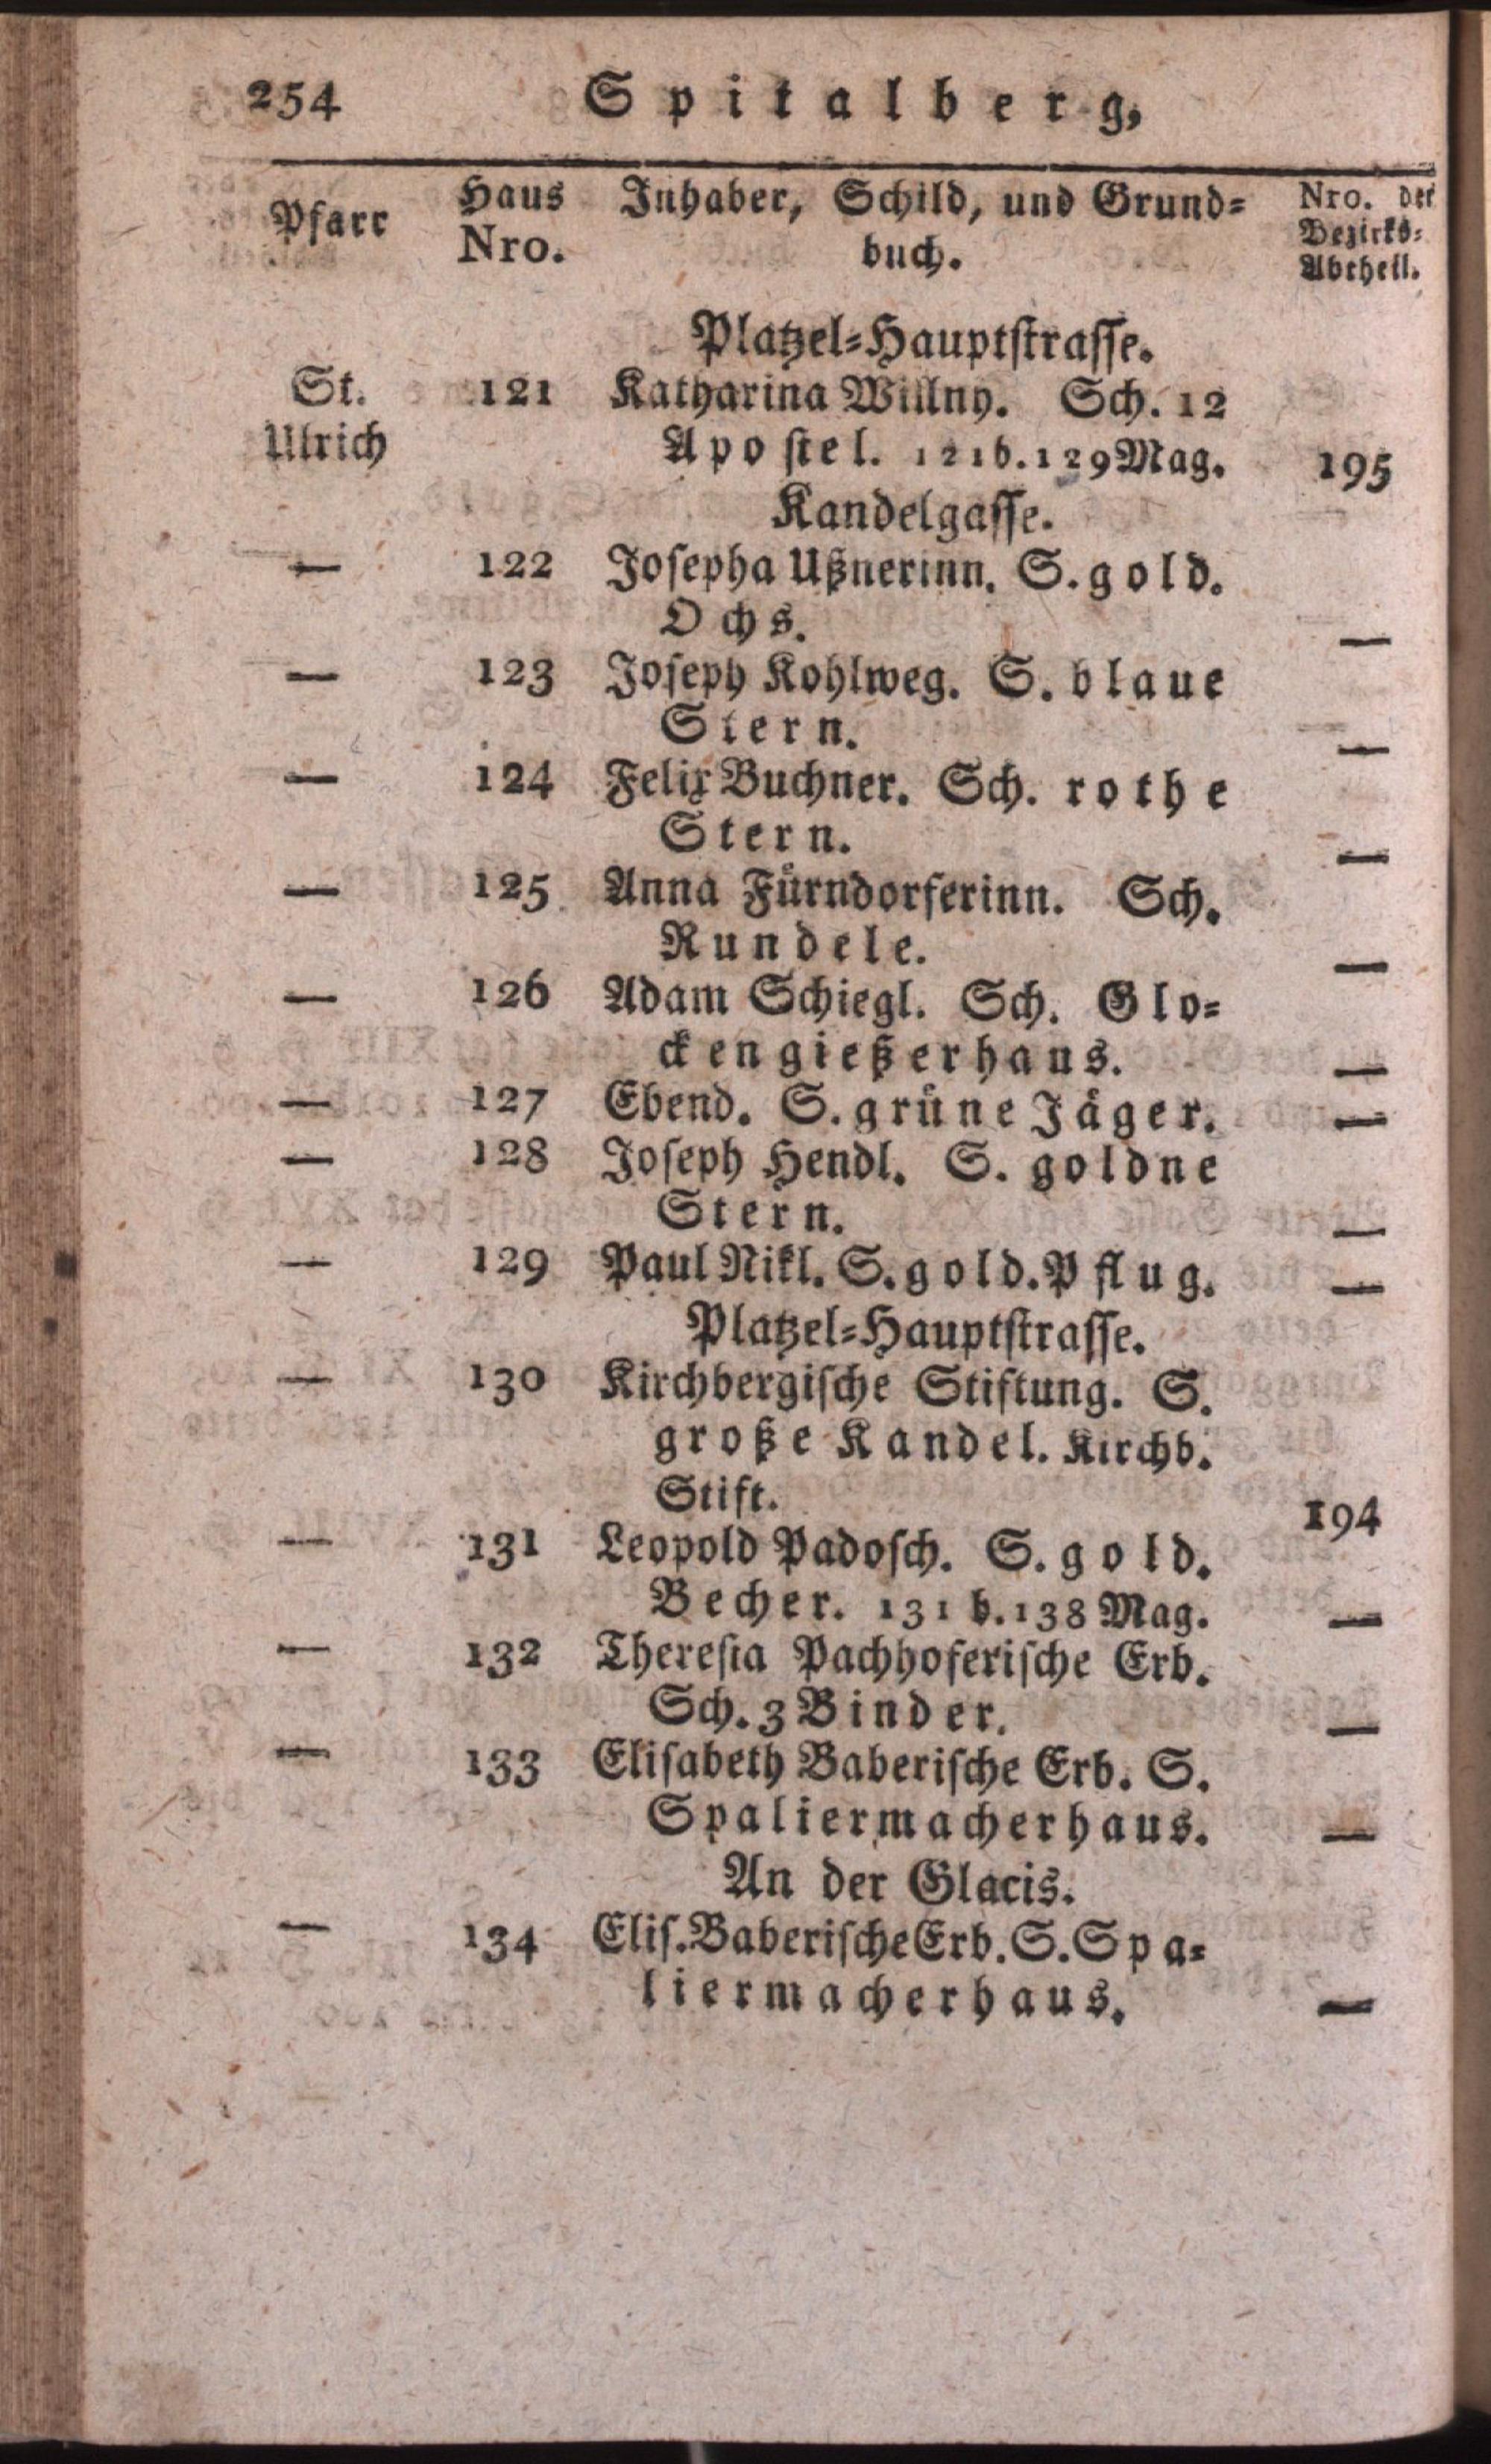 254 Spitalberg,
Pfarr Haus Nro. Inhaber, Schild, und Grund=
buch. Nro. der Bezirks= Abtheil.
Platzel=Hauptstrasse.
St. 121 Katharina Willny. Sch. 12
Ulrich Apostel. 121b.129 Mag. 195
Kandelgasse.
— 122 Josepha Ußnerinn. S. gold.
Ochs. —
— 123 Joseph Kohlweg. S. blaue
Stern. —
— 124 Felix Buchner. Sch. rothe
Stern. —
— 125 Anna Fürndorferinn. Sch.
Rundele. —
— 126 Adam Schiegl. Sch. Glo=
ckengießerhaus. —
— 127 Ebend. S. grüne Jäger. —
— 128 Joseph Hendl. S. goldne
Stern. —
— 129 Paul Nikl. S. gold. Pflug. —
Platzel=Hauptstrasse.
— 130 Kirchbergische Stiftung. S.
große Kandel. Kirchb.
Stift. 194
— 131 Leopold Padosch. S. gold.
Becher. 131 b. 138 Mag. —
— 132 Theresia Pachhoferische Erb.
Sch. 3 Binder. —
— 133 Elisabeth Baberische Erb. S.
Spaliermacherhaus. —
An der Glacis.
— 134 Elis. Baberische Erb. S. Spa=
liermacherhaus. —